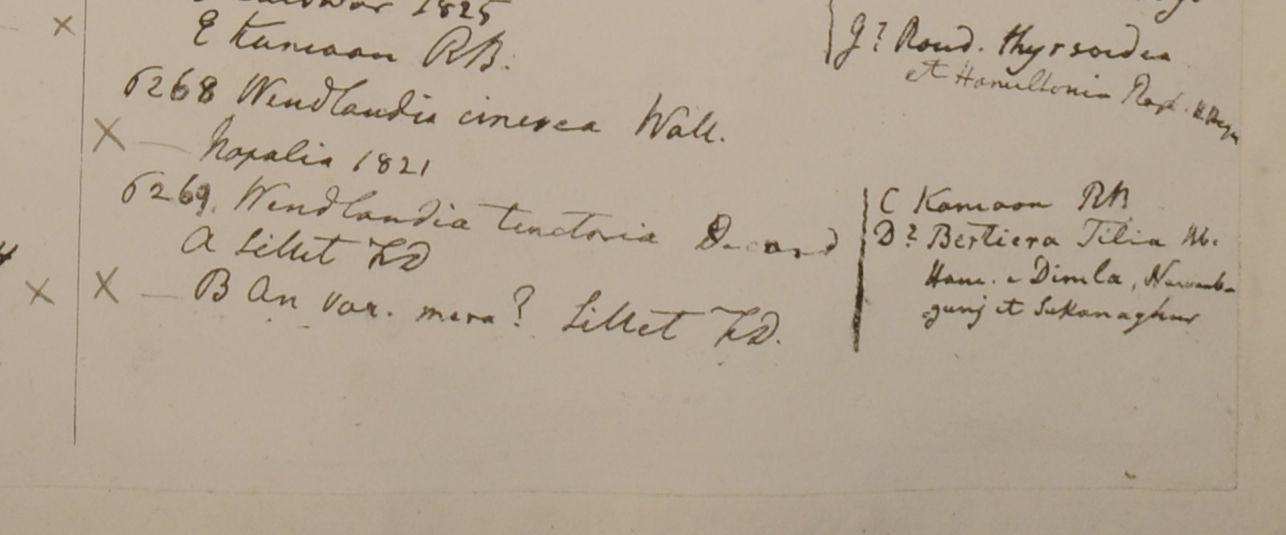 1825
E Kamaon RB.
6268 Wendlandia cinerea Wall.
X — Napalia 1821
6269. Wendlandia tinctoria Decand
A Sillet FD
X X — B An var. mera? Sillet FD.
G? Rond. thyrsoidea
et Hamiltonia
C Kamaon RB
D? Bertiera Tilia Hb.
Ham. e Dimla,
gunj et Sukanaghur